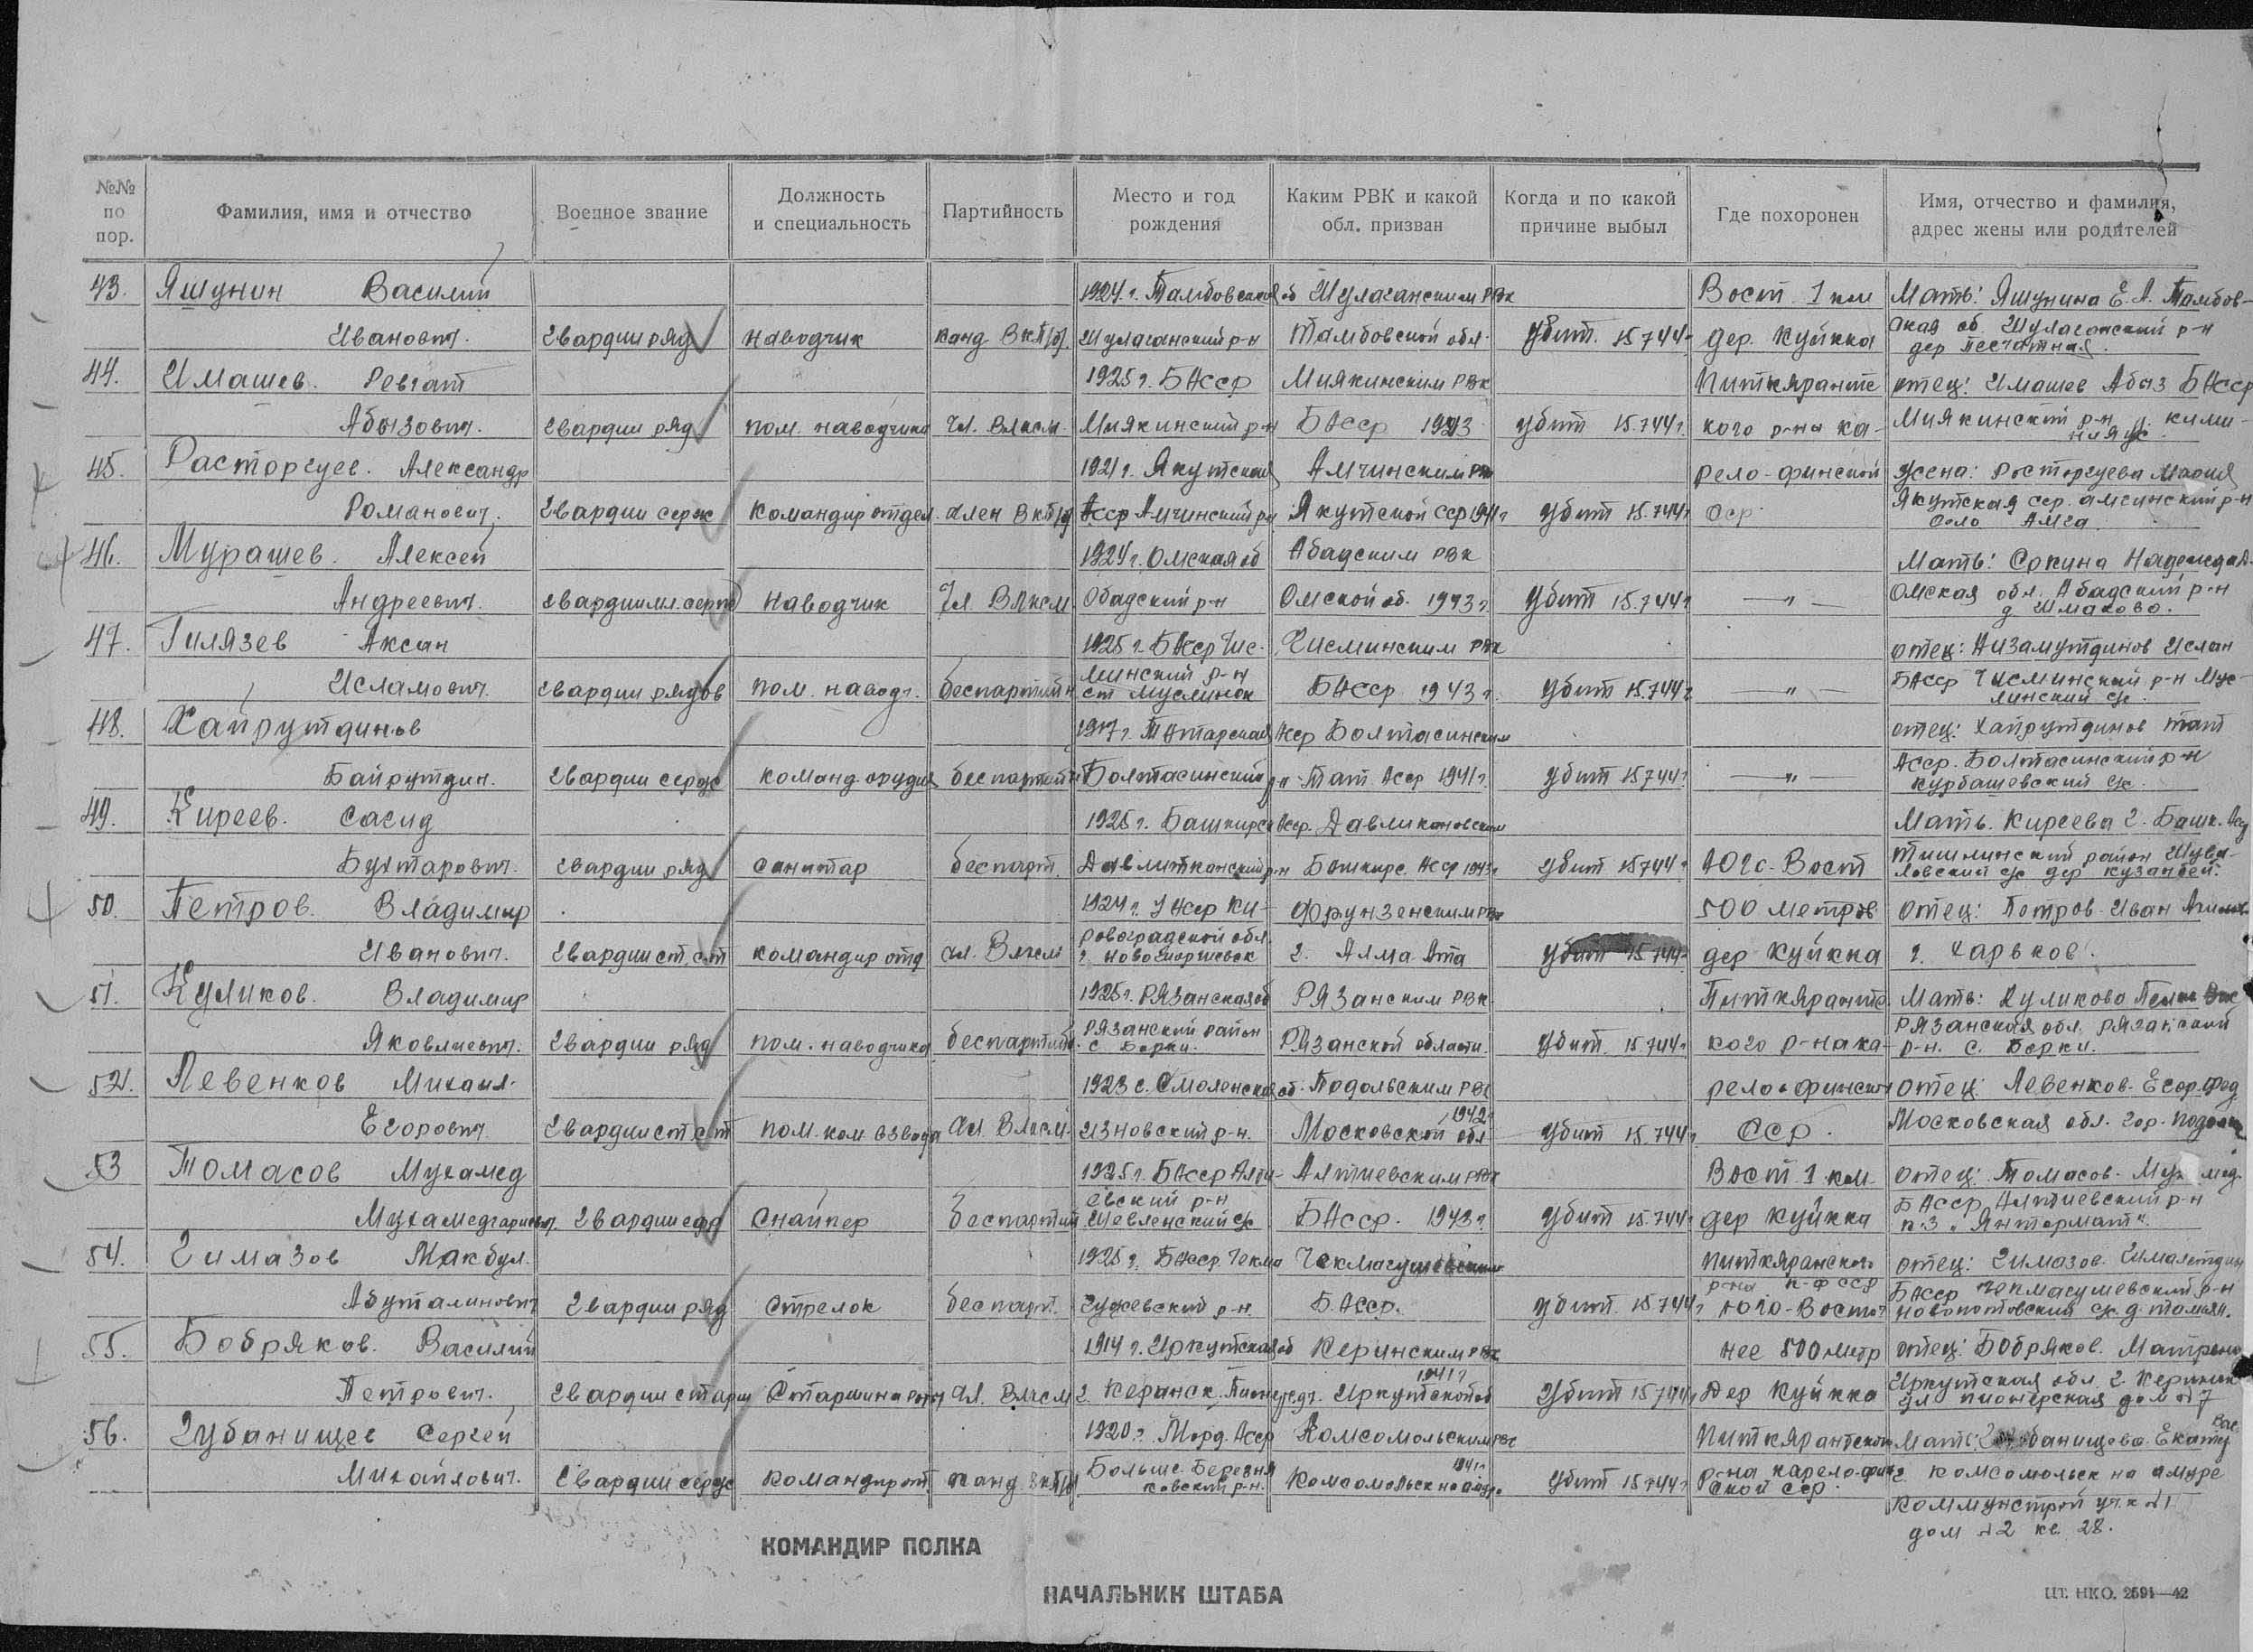 №№ по пор. Фамилия, имя и отчество Военное звание Должность и специальность Партийность Место и год рождения Каким РВК и какой обл. призван Когда и по какой причине выбыл Где похоронен Имя, отчество и фамилия, адрес жены или родителей
43. Яшунин Василий 1924 г. Тамбовская об Шулаганским РВк Вост 1 км Мать: Яшунина Е. А. Тамбов-
Иванович. гвардии ряд наводчик канд ВКП/б/. Шулаганский р-н Тамбовской обл. Убит. 15.7.44г дер. Куйкка ская об. Шулаганский р-н
дер Песчатная.
44. Имашев. Ревгат 1925 г. БАсср Миякинским РВк Питкярантс отец: Имашев Абыз БАсср
Абызович. гвардии ряд пом. наводчика Чл. Влксм. Миякинский р-н БАсср 1943 убит 15.7.44 г. кого р-на ка- Миякинский р-н
45. Расторгуев. Александр 1921 г. Якутская Амгинским РВк рело-финской жена: Росторгуева Мария
Романович. гвардии серж командир отдел. член ВКП/б Асср Амгинский рн Якутской сср 1941г убит 15.7.44г сср Якутская сср. амгинский р-н
село Амга.
46. Мурашев. Алексей 1924 г. Омская об Абадским РВк Мать: Сокина Надежда
Андреевич. гвардии мл. серж наводчик Чл ВЛксм. Обадский р-н Омской об. 1943 г. Убит 15.7.44г — " — Омская обл. Абадский р-н
д. Шмаково.
47. Гилязев Аксан 1925 г. БАсср Чис- Чисминским РВк отец: Низамутдинов Ислам
Исламович. гвардии рядов пом. наводч. беспартийн минский р-н БАсср 1943 г. Убит 15.7.44г — " — БАсср Чисминский р-н Мус-
ст муслинок линский с/с.
48. Хайрутдинов 1917 г. Татарская Асср Болтасинским отец: Хайрутдинов тат
Байрутдин. гвардии серж команд. орудия беспартийн Болтасинский р-н Тат Асср 1941г. убит 15.7.44г. — " — Асср. Болтасинский р-н
Курбашевский с/с.
49. Киреев. Сагид 1925 г. Башкирс Асср. Давликановским Мать. Киреева г. Башк. Асср
Бухтарович. гвардии ряд санитар беспарт. Давлитканский р-н Башкирс. Асср 1943г убит 15.7.44г Юго-Вост Тишлинский район Шува-
ловский с/с дер Кузанбей.
50. Петров. Владимир 1924 г. УАсср Ки- Фрунзенским РВк 500 метров отец: Петров Иван
Иванович. гвардии ст. с-т командир отд чл. Влксм ровоградской обл. г. Алма Ата убит 15.7.44г дер Куйкка г. Харьков.
г. новогиоргиевск
51. Куликов. Владимир 1925 г. Рязанская об Рязанским РВк. Питкярантс Мать: Куликова
Яковлиевич. гвардии ряд пом. наводчика беспартий. Рязанский район Рязанской области. Убит. 15.7.44г кого р-на ка- Рязанская обл. Рязанский
с. Борки. р-н. с. Борки.
52. Левенков Михаил. 1923 г. Смоленская об. Подольским РВк рело-финской отец: Левенков Егор Фед
Егорович. гвардии ст. с-т пом. ком взвода Чл. Влксм. Изновский р-н. Московской обл 1942г убит 15.7.44г. сср. Московская обл. гор. Подольск
53 Томасов Мухамед 1925 г. БАсср Алши- Алшиевским РВк Вост 1 км. отец: Томасов
Мухамедгариевич. гвардии еф Снайпер беспартий евский р-н БАсср. 1943 г. Убит 15.7.44г дер Куйкка БАсср Алшиевский р-н
Шевленский с/с
54. Гимазов Макбул. 1925 г. БАсср Чекма Чекмагушевским питкяранского отец: Гимазов
Абуталинович гвардии ряд Стрелок беспарт. гушевский р-н. БАсср. Убит. 15.7.44г р-на К-Ф ССР БАсср Чекмагушевский р-н
юго-восточ новопотовский с/с. д. томаян.
55. Бобряков. Василий 1914 г. Иркутская об Керинским РВк нее 500 метр отец: Бобряков.
Петрович. гвардии старш Старшина роты Чл. Влксм г. Керанск. Пионерск. Иркутской об 1941 г Убит 15.7.44г Дер Куйкка Иркутская обл. г. Керинск
ул пионерская дом №7
56. Губанищев Сергей 1920 г. Морд. Асср Комсомольским РВк Питкярантском Мать: Губанищева Екатер Вас
Михайлович. гвардии серж командир от. канд ВКП/б Больше-Березня Комсомольск на амуре 1941г Убит 15.7.44г р-на карело-фин г комсомольск на амуре
ковский р-н. ской сср. Коммунстрой уч. к №1
дом №2 кв. 28.
КОМАНДИР ПОЛКА
НАЧАЛЬНИК ШТАБА
ЦТ. НКО. 2591—42